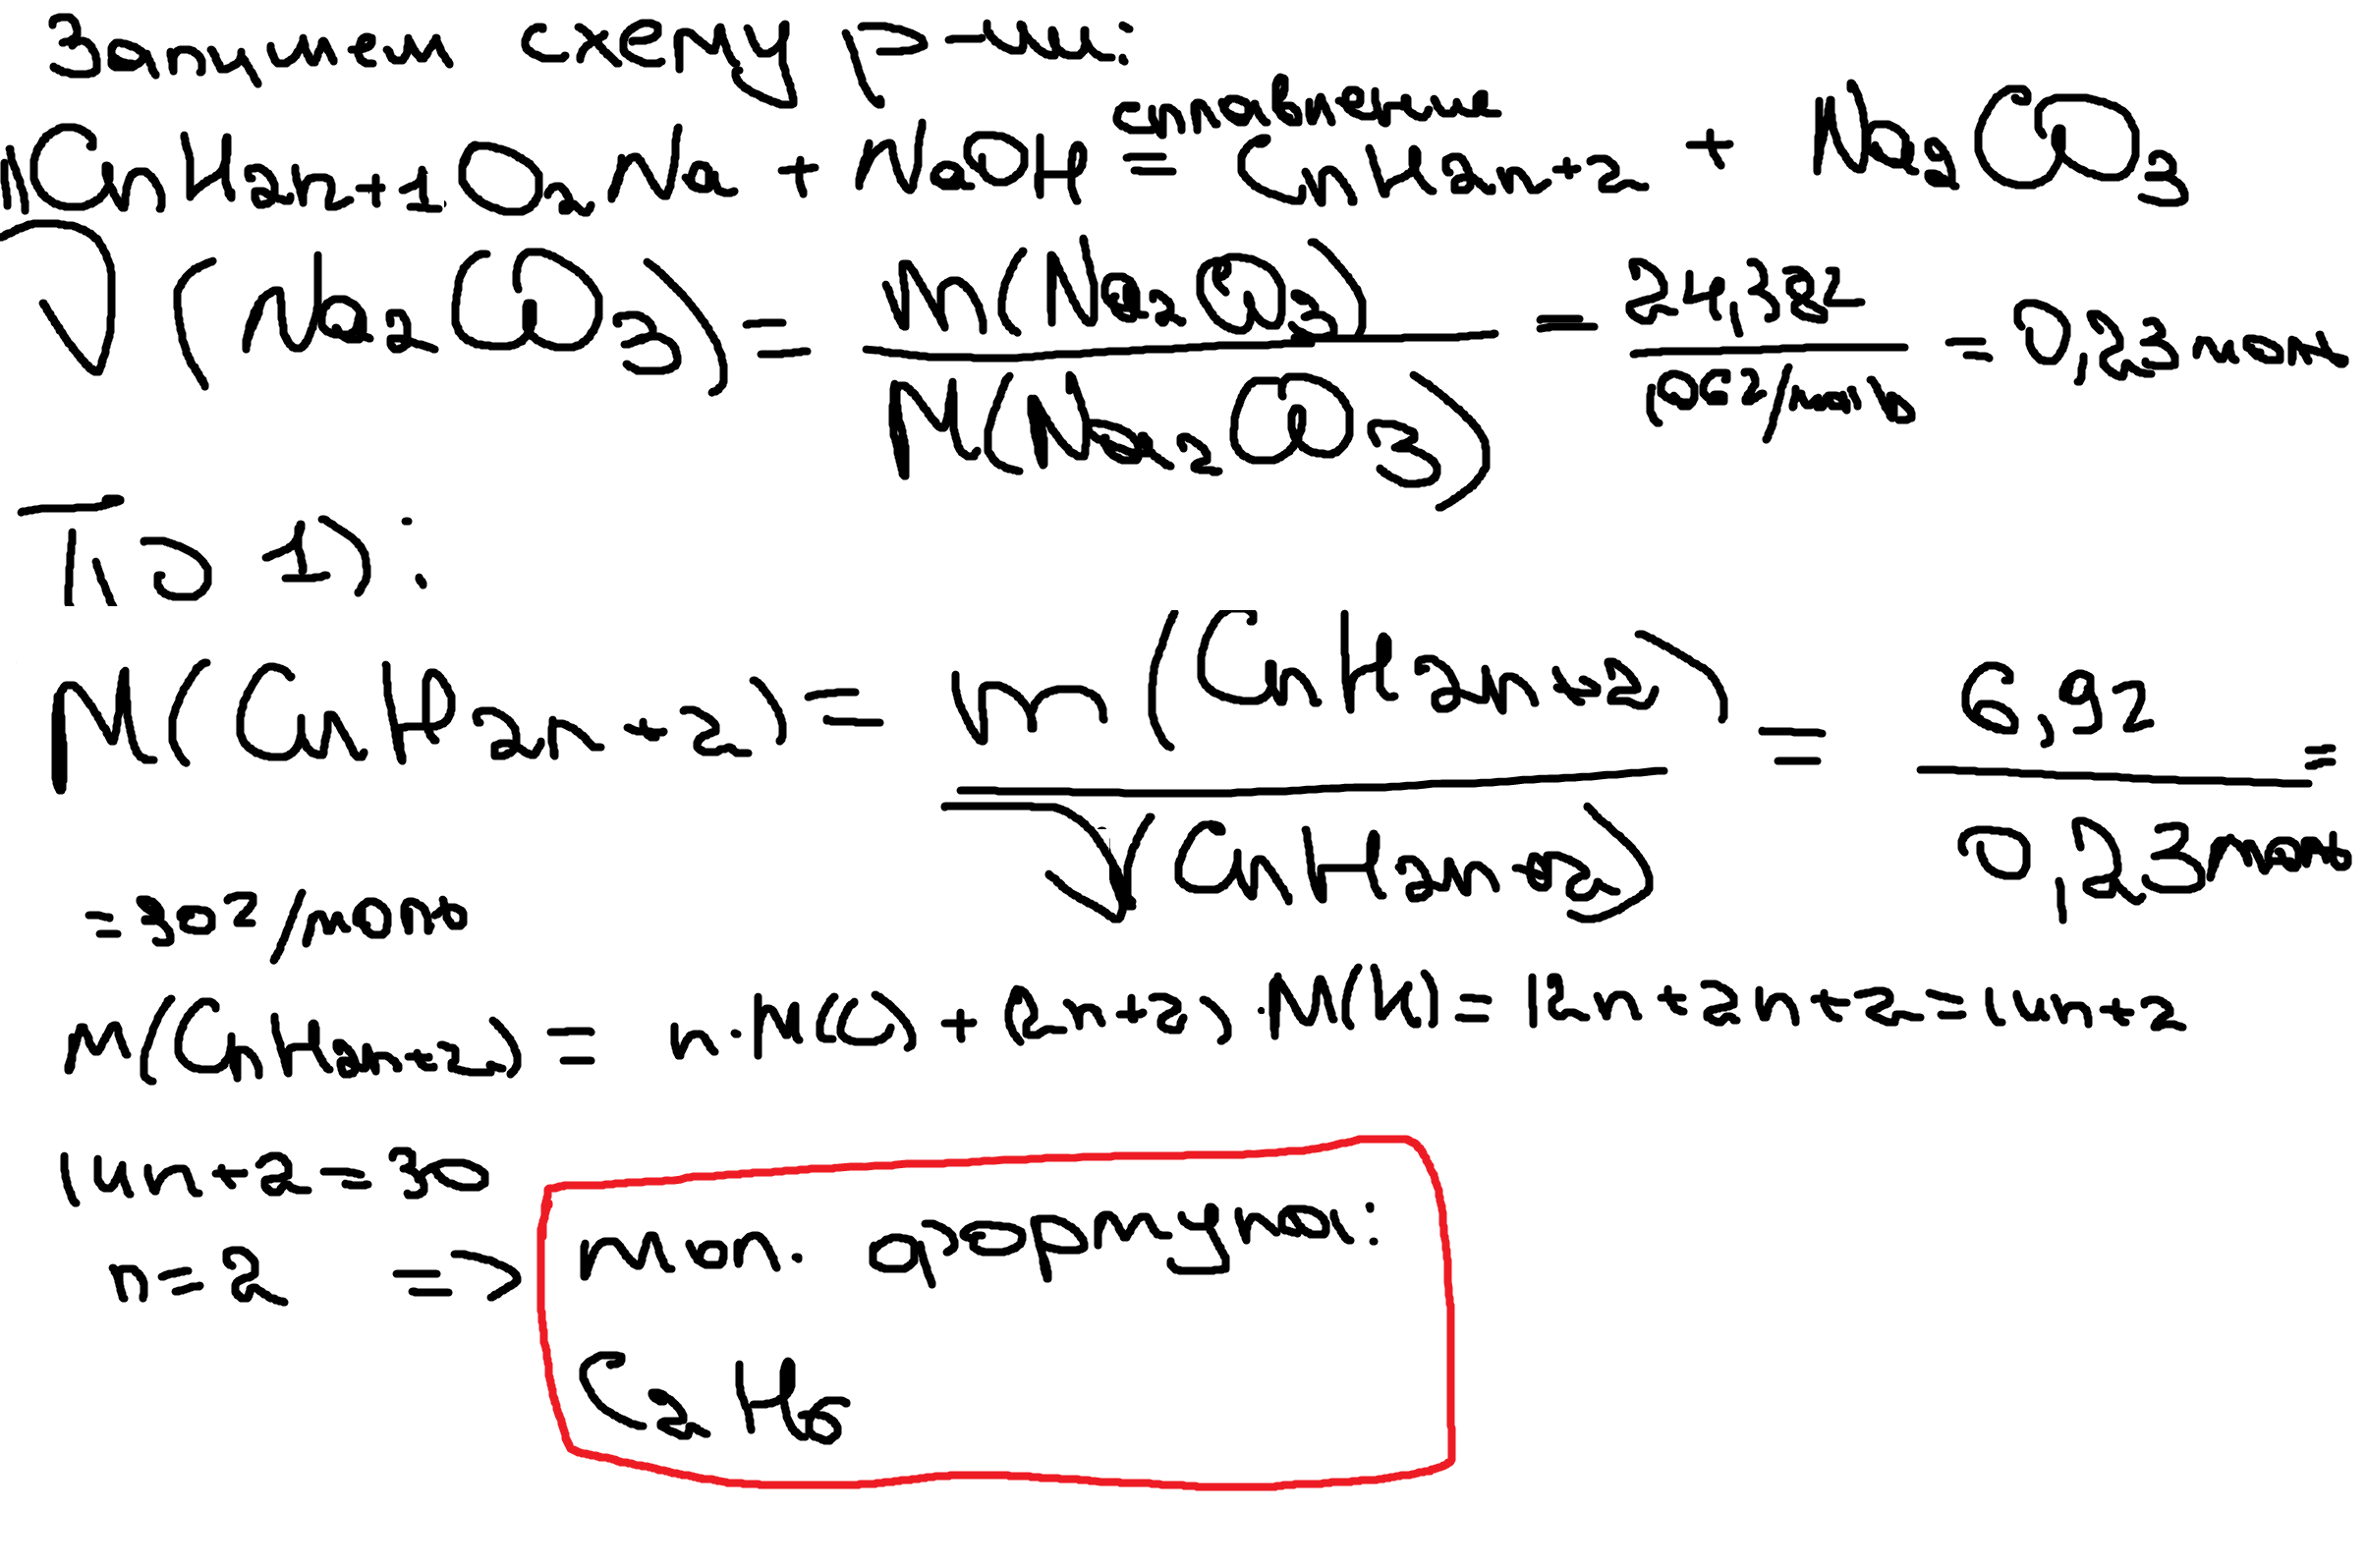 Запишем схему р-ии:
сплавление
CnH2n+1O2Na + NaOH = CnH2n+2 + Na2CO3
ν(Na2CO3) = m(Na2CO3) / M(Na2CO3) = 24,38г / 106г/моль = 0,23 моль
По 1):
M(CnH2n+2) = m(CnH2n+2) / ν(CnH2n+2) = 6,92 / 0,23 моль =
= 30г/моль
M(CnH2n+2) = n·M(C) + (2n+2)·M(H) = 12n+2n+2 = 14n+2
14n+2=30
n=2 =>
мол. формула:
C2H6